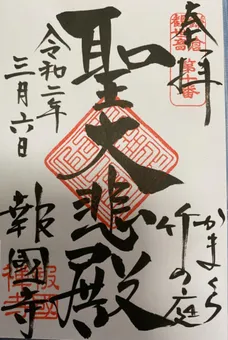 奉拝
鎌倉
観音
第十番
かまくら
竹の庭
聖大悲殿
令和二年
三月六日
報國寺